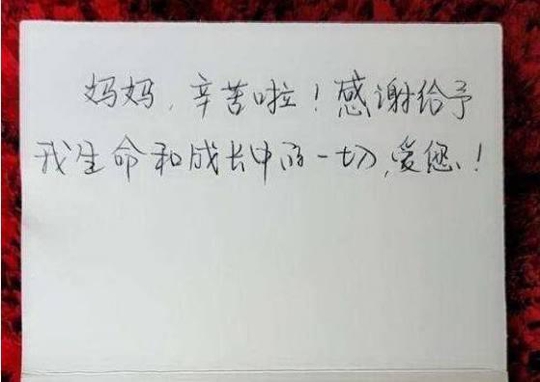 妈妈，辛苦啦！感谢给予
我生命和成长中的一切，爱您！